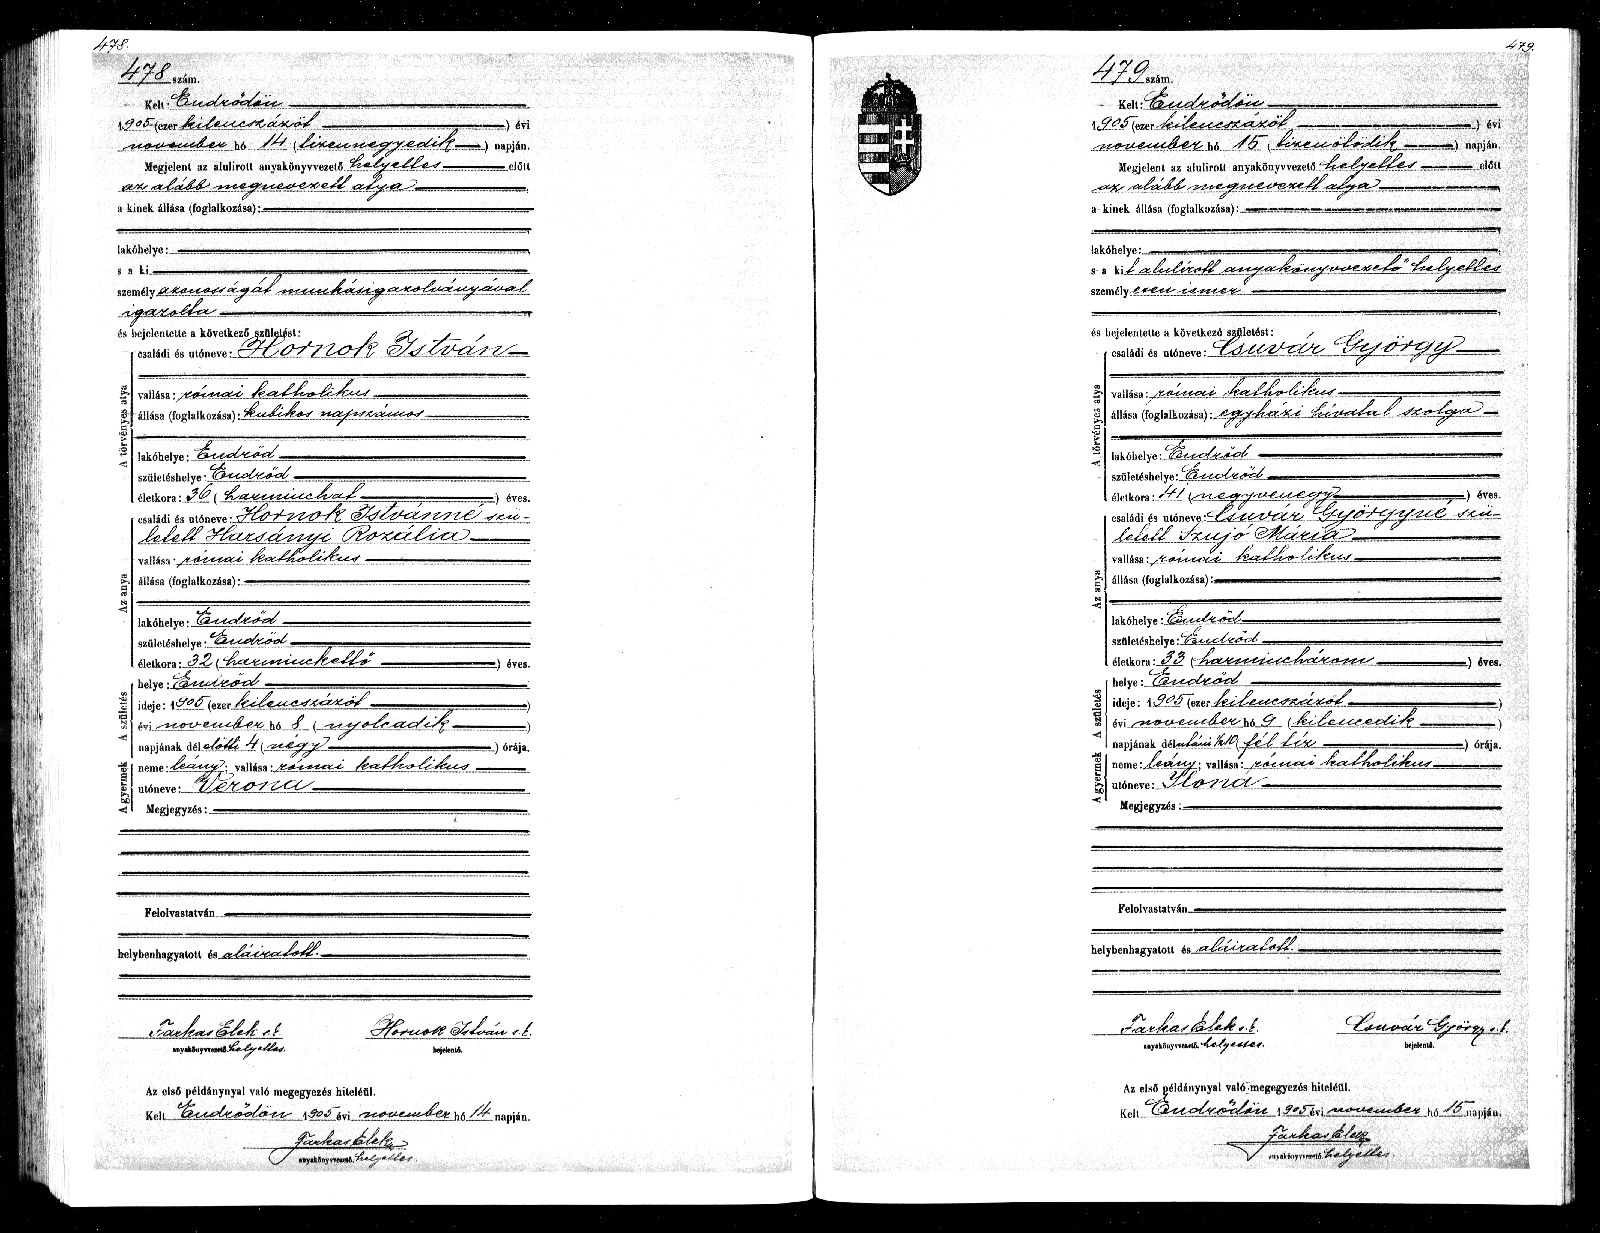 478.
478 szám.
Kelt: Endrődön
1905 (ezer kilencszázöt) évi
november hó 14 (tizennegyedik) napján.
Megjelent az alulirott anyakönyvvezető helyettes előtt
az alább megnevezett atya
a kinek állása (foglalkozása):
lakóhelye:
s a ki
személyazonosságát munkásigazolványával
igazolta
és bejelentette a következő születést:
A törvényes atya
családi és utóneve: Hornok István
vallása: római katholikus
állása (foglalkozása): kubikos napszámos
lakóhelye: Endrőd
születéshelye: Endrőd
életkora: 36 (harminchat) éves.
Az anya
családi és utóneve: Hornok Istvánné szü-
letett Harsányi Rozália
vallása: római katholikus
állása (foglalkozása):
lakóhelye: Endrőd
születéshelye: Endrőd
életkora: 32 (harminckettő) éves.
A születés
helye: Endrőd
ideje: 1905 (ezer kilencszázöt)
évi november hó 8 (nyolcadik)
napjának délelőtti 4 (négy) órája.
A gyermek
neme: leány; vallása: római katholikus
utóneve: Verona
Megjegyzés:
Felolvastatván
helybenhagyatott és aláiratott.
Farkas Elek s.k. Hornok István s.k.
anyakönyvvezető helyettes. bejelentő.
Az első példánynyal való megegyezés hiteléül.
Kelt Endrődön 1905 évi november hó 14 napján.
Farkas Elek
anyakönyvvezető helyettes.
479.
479 szám.
Kelt: Endrődön
1905 (ezer kilencszázöt) évi
november hó 15 (tizenötödik) napján.
Megjelent az alulirott anyakönyvvezető helyettes előtt
az alább megnevezett atya
a kinek állása (foglalkozása):
lakóhelye:
s a kit alulirott anyakönyvvezető helyettes
személyesen ismer
és bejelentette a következő születést:
A törvényes atya
családi és utóneve: Csuvár György
vallása: római katholikus
állása (foglalkozása): egyházi hivatal szolga
lakóhelye: Endrőd
születéshelye: Endrőd
életkora: 41 (negyvenegy) éves.
Az anya
családi és utóneve: Csuvár Györgyné szü-
letett Szujó Mária
vallása: római katholikus
állása (foglalkozása):
lakóhelye: Endrőd
születéshelye: Endrőd
életkora: 33 (harminchárom) éves.
A születés
helye: Endrőd
ideje: 1905 (ezer kilencszázöt)
évi november hó 9 (kilencedik)
napjának délutáni ½10 (fél tíz) órája.
A gyermek
neme: leány; vallása: római katholikus
utóneve: Ilona
Megjegyzés:
Felolvastatván
helybenhagyatott és aláiratott.
Farkas Elek s.k. Csuvár György s.k.
anyakönyvvezető helyettes. bejelentő.
Az első példánynyal való megegyezés hiteléül.
Kelt Endrődön 1905 évi november hó 15 napján.
Farkas Elek
anyakönyvvezető helyettes